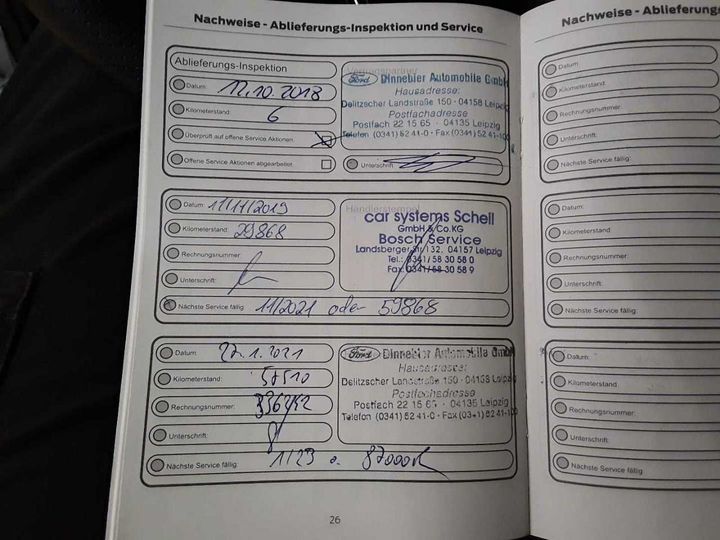 Nachweise - Ablieferungs-Inspektion und Service
Nachweise - Ablieferungs
Ablieferungs-Inspektion
Datum: 12.10.2018
Kilometerstand: 6
Überprüft auf offene Service Aktionen
Offene Service Aktionen abgearbeitet
Ford Dinnebier Automobile GmbH
Hausadresse:
Delitzscher Landstraße 150 · 04158 Leipzig
Postfachadresse
Postfach 22 15 65 · 04135 Leipzig
Telefon (0341) 52 41-0 · Fax (0341) 52 41-100
Unterschrift:
Datum: 11/11/2019
Kilometerstand: 29868
Rechnungsnummer:
Unterschrift:
Händlerstempel
car systems Schell
GmbH & Co.KG
Bosch Service
Landsberger Str. 132, 04157 Leipzig
Tel.: 0341/58 30 58 0
Fax: 0341/58 30 58 9
Nächste Service fällig: 11/2021 oder 59868
Datum: 27.1.2021
Kilometerstand: 57510
Rechnungsnummer:
Unterschrift:
Ford Dinnebier Automobile GmbH
Hausadresse:
Delitzscher Landstraße 150 · 04158 Leipzig
Postfachadresse
Postfach 22 15 65 · 04135 Leipzig
Telefon (0341) 52 41-0 · Fax (0341) 52 41-100
Nächste Service fällig: 1/23 o. 87000
26
Datum
Kilometerstand
Rechnungsnummer:
Unterschrift:
Nächste Service fällig:
Datum:
Kilometerstand
Rechnungsnummer:
Unterschrift:
Nächste Service fällig:
Datum:
Kilometerstand:
Rechnungsnummer:
Unterschrift:
Nächste Service fällig: